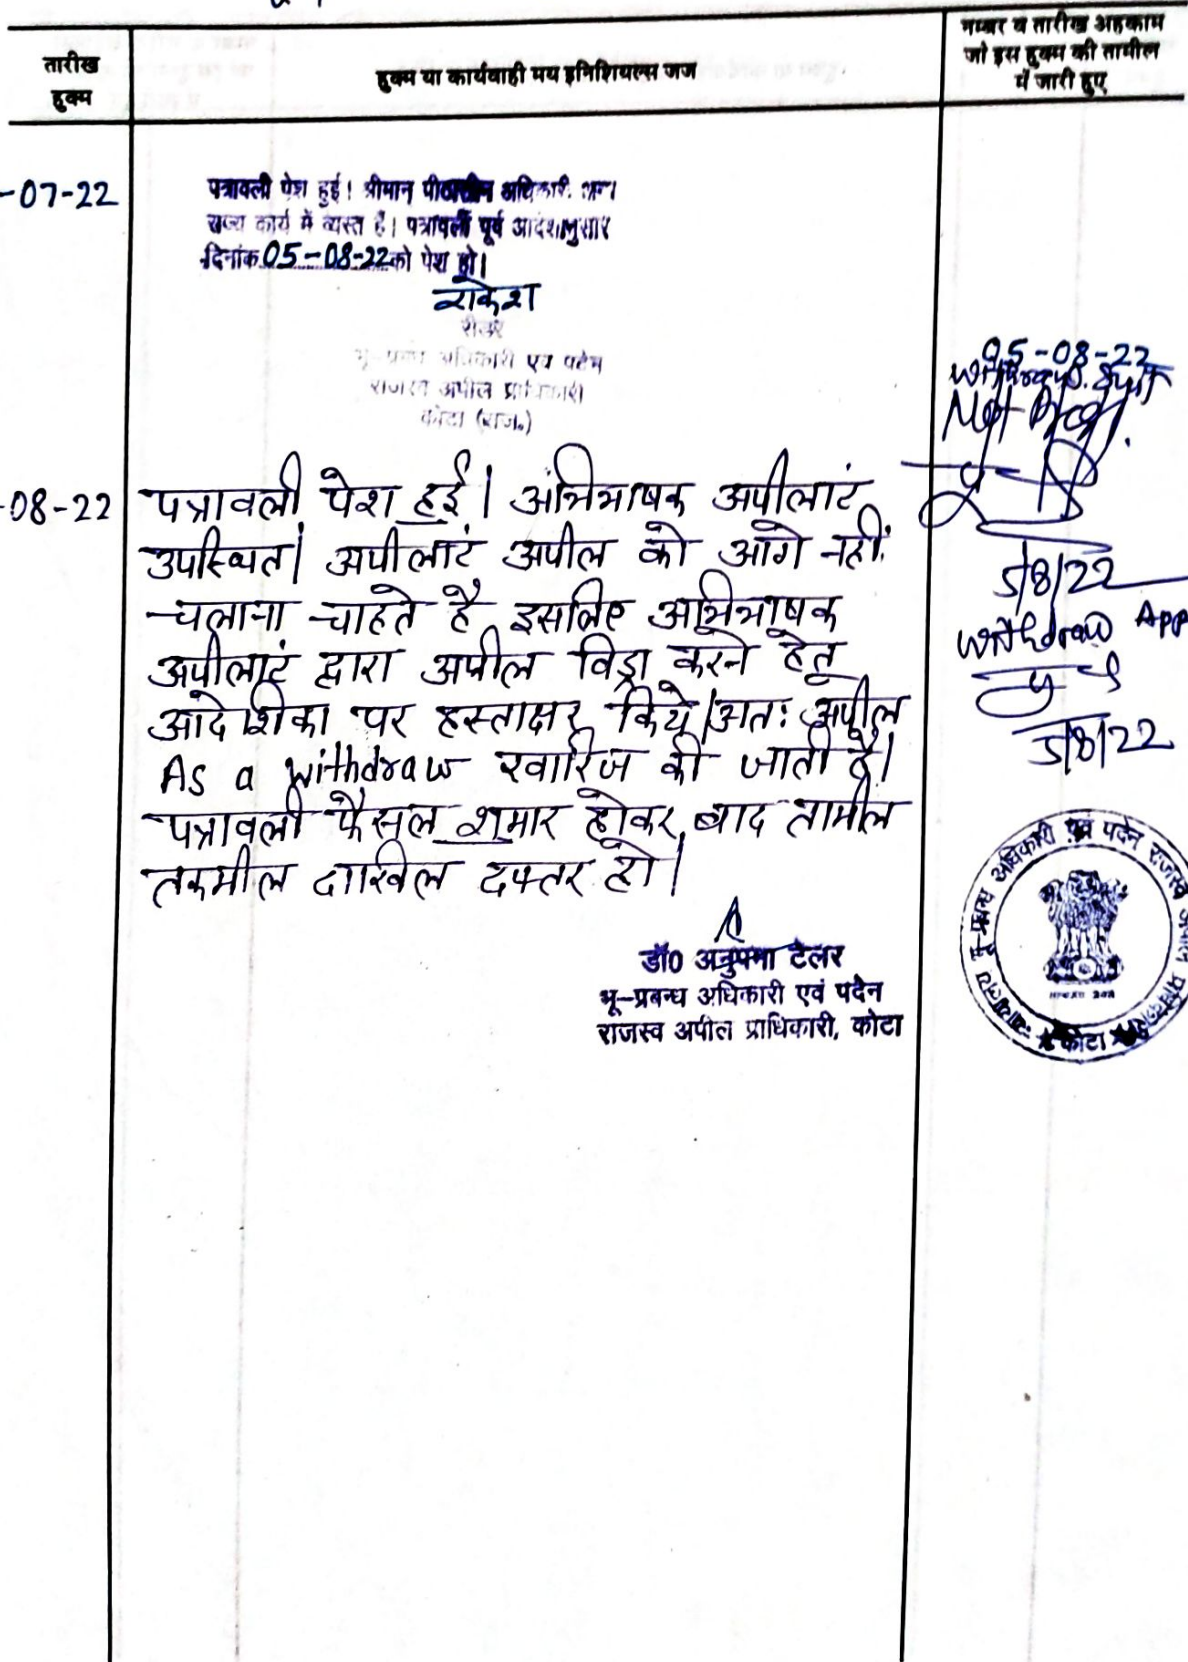 तारीख
हुक्म
हुक्म या कार्यवाही मय इनिशियल्स जज
नम्बर व तारीख अहकाम
जो इस हुक्म की तामील
में जारी हुए
-07-22
पत्रावली पेश हुई। श्रीमान पीठासीन अधिकारी
राज्य कार्य में व्यस्त है। पत्रावली पूर्व आदेशानुसार
दिनांक 05-08-22 को पेश हो।
राकेश
रीडर
भू-प्रबन्ध अधिकारी एवं पदेन
राजस्व अपील प्राधिकारी
कोटा (राज.)
05-08-22
-08-22
पत्रावली पेश हुई। अभिभाषक अपीलांट
उपस्थित। अपीलांट अपील को आगे नहीं
चलाना चाहते है इसलिए अभिभाषक
अपीलांट द्वारा अपील विड्रा करने हेतू
आदेशिका पर हस्ताक्षर किये। अतः अपील
As a withdraw खारिज की जाती है।
पत्रावली फैसल शुमार होकर बाद तामील
तकमील दाखिल दफ्तर हो।
5/8/22
withdraw App
5/8/22
डॉ० अनुपमा टेलर
भू-प्रबन्ध अधिकारी एवं पदेन
राजस्व अपील प्राधिकारी, कोटा
न्यायालय भू-प्रबन्ध अधिकारी एवं पदेन राजस्व अपील प्राधिकारी
★ कोटा ★